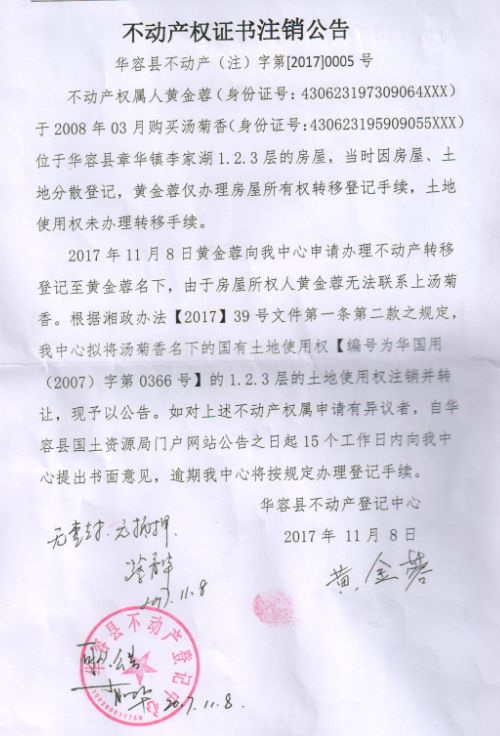 不动产权证书注销公告
华容县不动产（注）字第[2017]0005 号
不动产权属人黄金蓉（身份证号：430623197309064XXX）
于 2008 年 03 月购买汤菊香（身份证号：430623195909055XXX）
位于华容县章华镇李家湖 1.2.3 层的房屋，当时因房屋、土
地分散登记，黄金蓉仅办理房屋所有权转移登记手续，土地
使用权未办理转移手续。
2017 年 11 月 8 日黄金蓉向我中心申请办理不动产转移
登记至黄金蓉名下，由于房屋所权人黄金蓉无法联系上汤菊
香。根据湘政办法【2017】39 号文件第一条第二款之规定，
我中心拟将汤菊香名下的国有土地使用权【编号为华国用
（2007）字第 0366 号】的 1.2.3 层的土地使用权注销并转
让，现予以公告。如对上述不动产权属申请有异议者，自华
容县国土资源局门户网站公告之日起 15 个工作日内向我中
心提出书面意见，逾期我中心将按规定办理登记手续。
华容县不动产登记中心
2017 年 11 月 8 日
无查封.无抵押
2017.11.8
黄金蓉
华容县不动产登记中心
公告
2017.11.8.